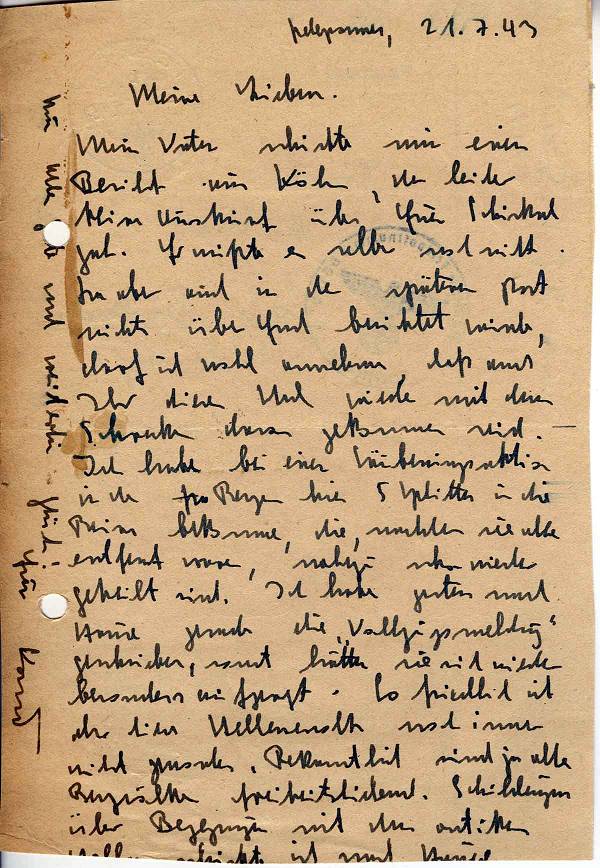 Peloponnes, 21.7.43
Meine Lieben.
Mein Vater schickte mir einen
Bericht aus Köln, der leider
keine Auskunft über Euer Schicksal
gab. Er wußte es selber noch nicht.
Da aber auch in der späteren Post
nichts über Euch berichtet wurde,
darf ich wohl annehmen, daß auch
Ihr dieses Mal wieder mit dem
Schrecken davon gekommen seid.
Ich habe bei einer Säuberungsaktion
in den Bergen hier 5 Splitter in die
Beine bekommen, die, nachdem sie alle
entfernt waren, nahezu schon wieder
geheilt sind. Ich habe gestern nach
Hause gerade die „Vollzugsmeldung"
geschrieben, sonst hätten sie sich wieder
besonders aufgeregt. So friedlich ist
also dieses Hellenenvolk noch immer
nicht geworden. Bekanntlich sind ja alle
Bergvölker freiheitsliebend. Schilderungen
über Begegnungen mit der antiken
ist nach Hause
Nun alles Gute und weiterhin Glück!
Euer